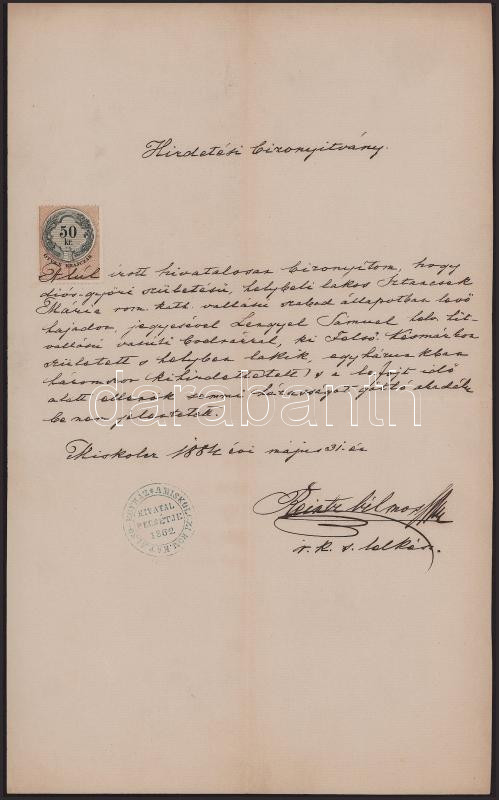 Hirdetési bizonyítvány.
50
kr.
ÖTVEN KRAJCZÁR
Alúl írott hivatalosan bizonyítom, hogy
diós-győri születésü, helybeli lakos Sztancsek
Mária rom. kath. vallású szabad állapotban levő
hajadon, jegyesével Lengyel Sámuel helv. hit-
vallású vasúti, ki Felső
született s helyben lakik, egyházunkban
háromszor kihirdettetett, s a lefolyt idő
alatt ellenök semmi házasságot gátló akadály
be nem jelentetett.
Miskolcz 1884 évi május 31-én
HIVATAL
PECSETJE
1862.
Vilmos
r. k. s. lelkész.
darabanth